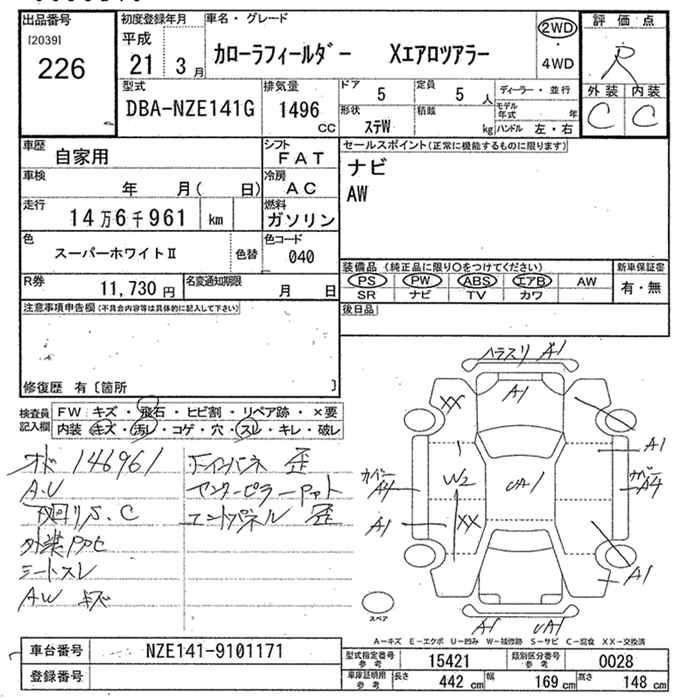 出品番号
[2039]
226
初度登録年月
平成
21 3月
車名・グレード
カローラフィールダー XエアロツアラーX
2WD
・
4WD
評価点
R
外装 内装
C C
型式
DBA-NZE141G
排気量
1496
CC
ドア
5
定員
5 人
形状
ステW
積載
kg
ディーラー・並行
モデル年式 年
ハンドル 左・右
車歴
自家用
シフト
FAT
車検
年 月( 日)
冷房
AC
走行
14万6千961 km
燃料
ガソリン
色
スーパーホワイトⅡ
色替
色コード
040
R券
11,730 円
名変通知期限
月 日
セールスポイント(正常に機能するものに限ります)
ナビ
AW
装備品(純正品に限り○をつけてください)
PS PW ABS エアB AW
SR ナビ TV カワ
新車保証書
有・無
後日品
注意事項申告欄(不具合内容等は具体的に記入して下さい)
修復歴 有〔箇所 〕
検査員記入欄
FW キズ・飛石・ヒビ割・リペア跡・×要
内装 キズ・汚レ・コゲ・穴・スレ・キレ・破レ
オド 146961
A.U
シートスレ
AW キズ
インパネ 歪
センターピラー
エンドパネル 歪
ハラスリ A1
A1
XX
A1
カバー
A4
W2
UA1
カバー
A4
A1
XX
A1
A1 UA1
スペア
A-キズ E-エクボ U-凹み W-補修跡 S-サビ C-腐食 XX-交換済
車台番号
NZE141-9101171
登録番号
型式指定番号
参考
15421
類別区分番号
参考
0028
車庫証明用
参考
長さ
442 cm
幅
169 cm
高さ
148 cm